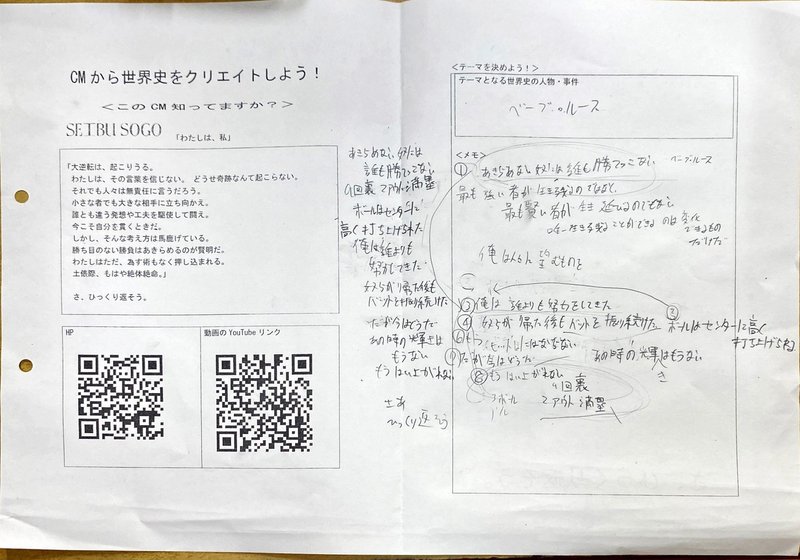 CMから世界史をクリエイトしよう！
＜このCM知ってますか？＞
SEIBU SOGO 「わたしは、私」
「大逆転は、起こりうる。
わたしは、その言葉を信じない。 どうせ奇跡なんて起こらない。
それでも人々は無責任に言うだろう。
小さな者でも大きな相手に立ち向かえ。
誰とも違う発想や工夫を駆使して闘え。
今こそ自分を貫くときだ。
しかし、そんな考え方は馬鹿げている。
勝ち目のない勝負はあきらめるのが賢明だ。
わたしはただ、為す術もなく押し込まれる。
土俵際、もはや絶体絶命。」
さ、ひっくり返そう。
HP
動画の YouTube リンク
あきらめない奴には
誰も勝てっこない
9回裏 2アウト満塁
ボールはセンターに
高く打ち上げられた
俺は誰よりも
努力してきた
奴らが帰った後も
バットを振り続けた
だが今はどうだ
あの時の輝きは
もうない
もうはい上がれない
さあ
ひっくり返そう
＜テーマを決めよう！＞
テーマとなる世界史の人物・事件
ベーブ・ルース
＜メモ＞
① あきらめない奴には誰も勝てっこない ベーブ・ルース
最も強い者が生き残るのではなく
最も賢い者が生き延びるのでもない
唯一生き残ることができるのは変化
できるもの
だけだ
俺は
③ 俺は誰よりも努力をしてきた
②
④ 奴らが帰った後もバットを振り続けた ボールはセンターに高く
打ち上げられた
⑥
だが今はどうだ あの時の輝きはもうない
⑧ もうはい上がれない
9回裏
2アウト満塁